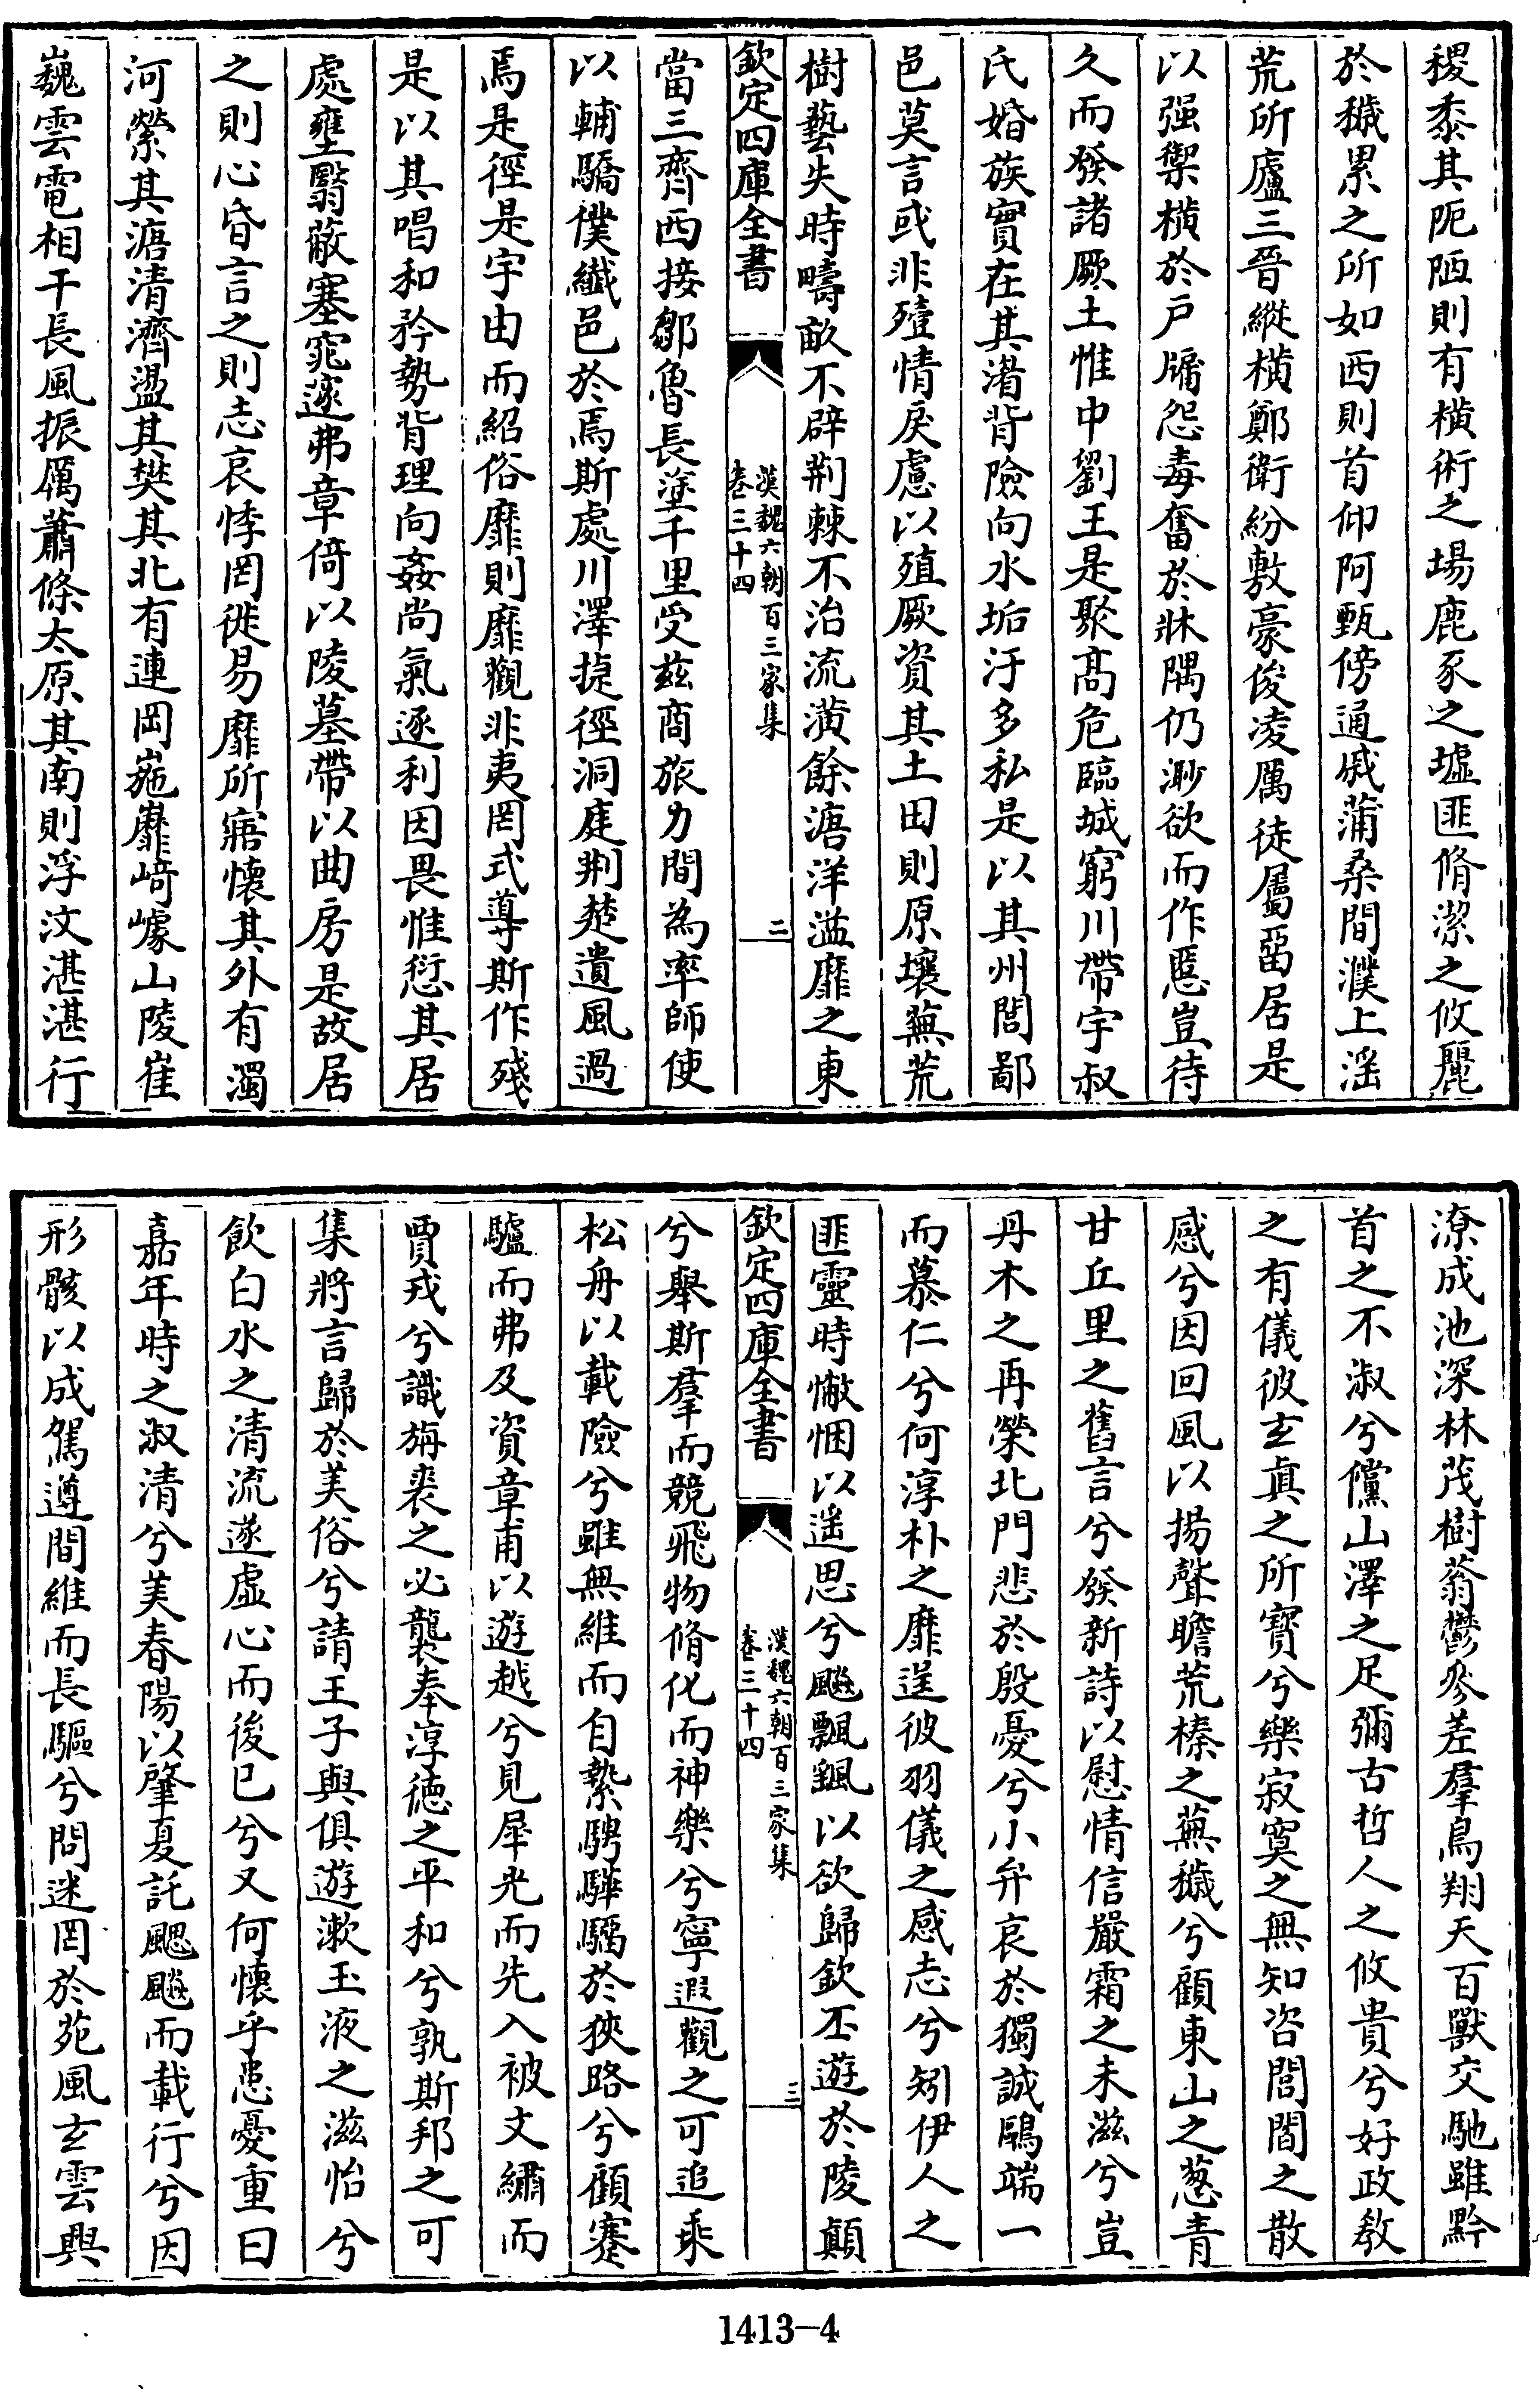 稷黍其阨陋則有橫術之場鹿豕之墟匪脩潔之攸麗
於穢累之所如西則首仰阿甄傍通戚蒲桑間濮上淫
荒所廬三晉縱橫鄭衛紛敷豪俊凌厲徒屬留居是
以强禦橫於戶牖怨毒奮於牀隅仍渺欲而作慝豈待
久而發諸厥土惟中劉王是聚高危臨城窮川帶宇叔
氏婚族實在其湄背險向水垢汙多私是以其州閭鄙
邑莫言或非殪情戾慮以殖厥資其土田則原壤蕪荒
樹藝失時疇畝不辟荆棘不治流潢餘溏洋溢靡之東
欽定四庫全書
漢魏六朝百三家集
卷三十四
二
當三齊西接鄒魯長塗千里受茲商旅力間為率師使
以輔驕僕纎邑於焉斯處川澤捷徑洞庭荆楚遺風過
焉是徑是宇由而紹俗靡則靡觀非夷罔式導斯作殘
是以其唱和矜勢背理向姦尚氣逐利因畏惟愆其居
處壅翳蔽塞窕邃弗章倚以陵墓帶以曲房是故居
之則心昏言之則志哀悸罔徙易靡所寤懷其外有濁
河縈其溏清濟盪其樊其北有連岡崺靡崎㠊山陵崔
巍雲電相干長風振厲蕭條太原其南則浮汶湛湛行
潦成池深林茂樹蓊鬱參差羣鳥翔天百獸交馳雖黔
首之不淑兮儻山澤之足彌古哲人之攸貴兮好政教
之有儀彼玄眞之所寶兮樂寂寞之無知咨閭閻之散
感兮因回風以揚聲瞻荒榛之蕪穢兮顧東山之葱青
甘丘里之舊言兮發新詩以慰情信嚴霜之未滋兮豈
丹木之再榮北門悲於殷憂兮小弁哀於獨誠鷗端一
而慕仁兮何淳朴之靡逞彼羽儀之感志兮矧伊人之
匪靈時㦡悃以遥思兮飈飄颻以欲歸欽丕遊於陵顛
欽定四庫全書
漢魏六朝百三家集
卷三十四
三
兮舉斯羣而競飛物脩化而神樂兮寧遐觀之可追乘
松舟以載險兮雖無維而自縶騁驊騮於狹路兮顧蹇
驢而弗及資章甫以遊越兮見犀光而先入被文繡而
賈戎兮識旃裘之必襲奉淳德之平和兮孰斯邦之可
集將言歸於美俗兮請王子與俱遊漱玉液之滋怡兮
飲白水之清流遂虚心而後已兮又何懷乎患憂重曰
嘉年時之淑清兮美春陽以肇夏託飇颷而載行兮因
形骸以成駕遵間維而長驅兮問迷罔於苑風玄雲興
1413-4